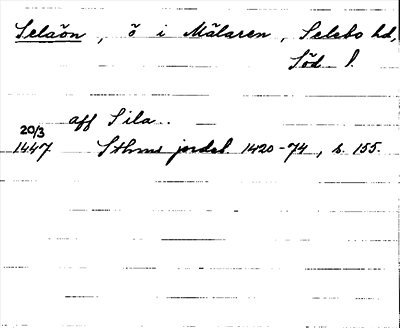 Selaön, ö i Mälaren, Selebo hd,
Söd l.
aff Sila..
20/3
1447 Sthms jordeb. 1420-74, s. 155.